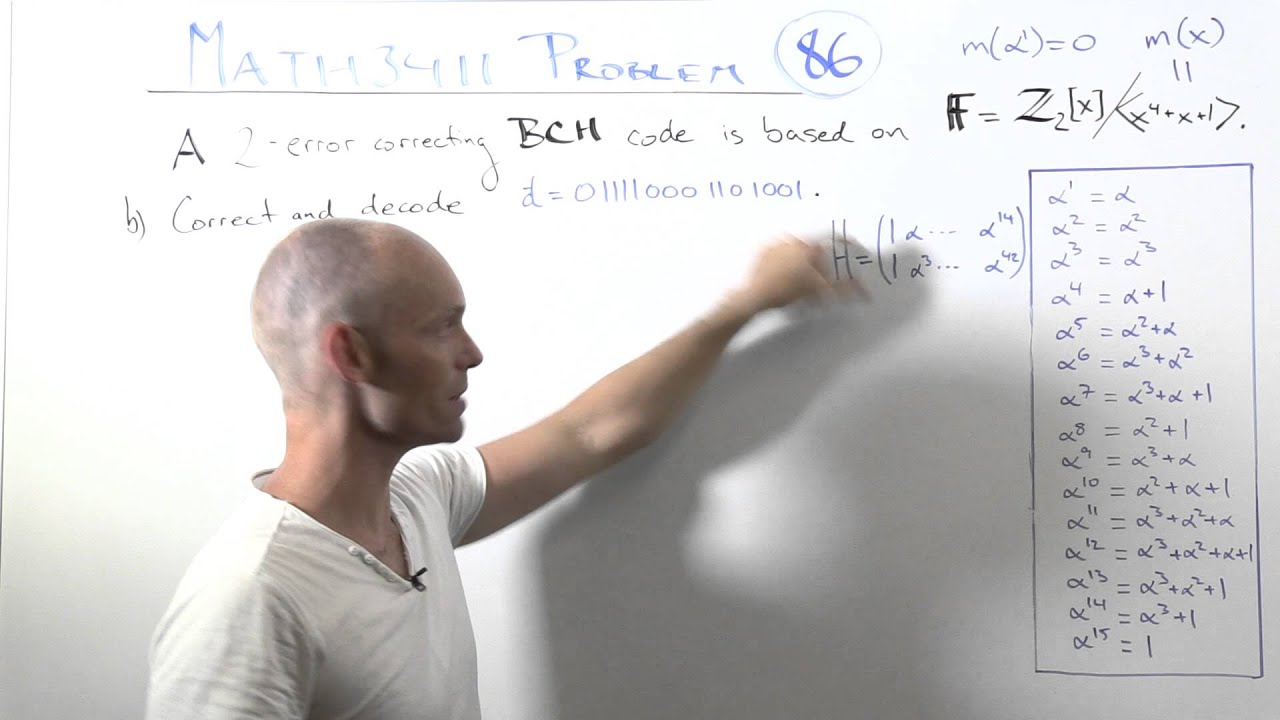 MATH3411 PROBLEM 86
m(α¹)=0 m(x)
||
A 2-error correcting BCH code is based on 𝔽 = ℤ₂[x]/<x⁴+x+1>.
b) Correct and decode d = 011110001101001.
H = (1 α ... α¹⁴
1 α³ ... α⁴²)
α¹ = α
α² = α²
α³ = α³
α⁴ = α+1
α⁵ = α²+α
α⁶ = α³+α²
α⁷ = α³+α+1
α⁸ = α²+1
α⁹ = α³+α
α¹⁰ = α²+α+1
α¹¹ = α³+α²+α
α¹² = α³+α²+α+1
α¹³ = α³+α²+1
α¹⁴ = α³+1
α¹⁵ = 1